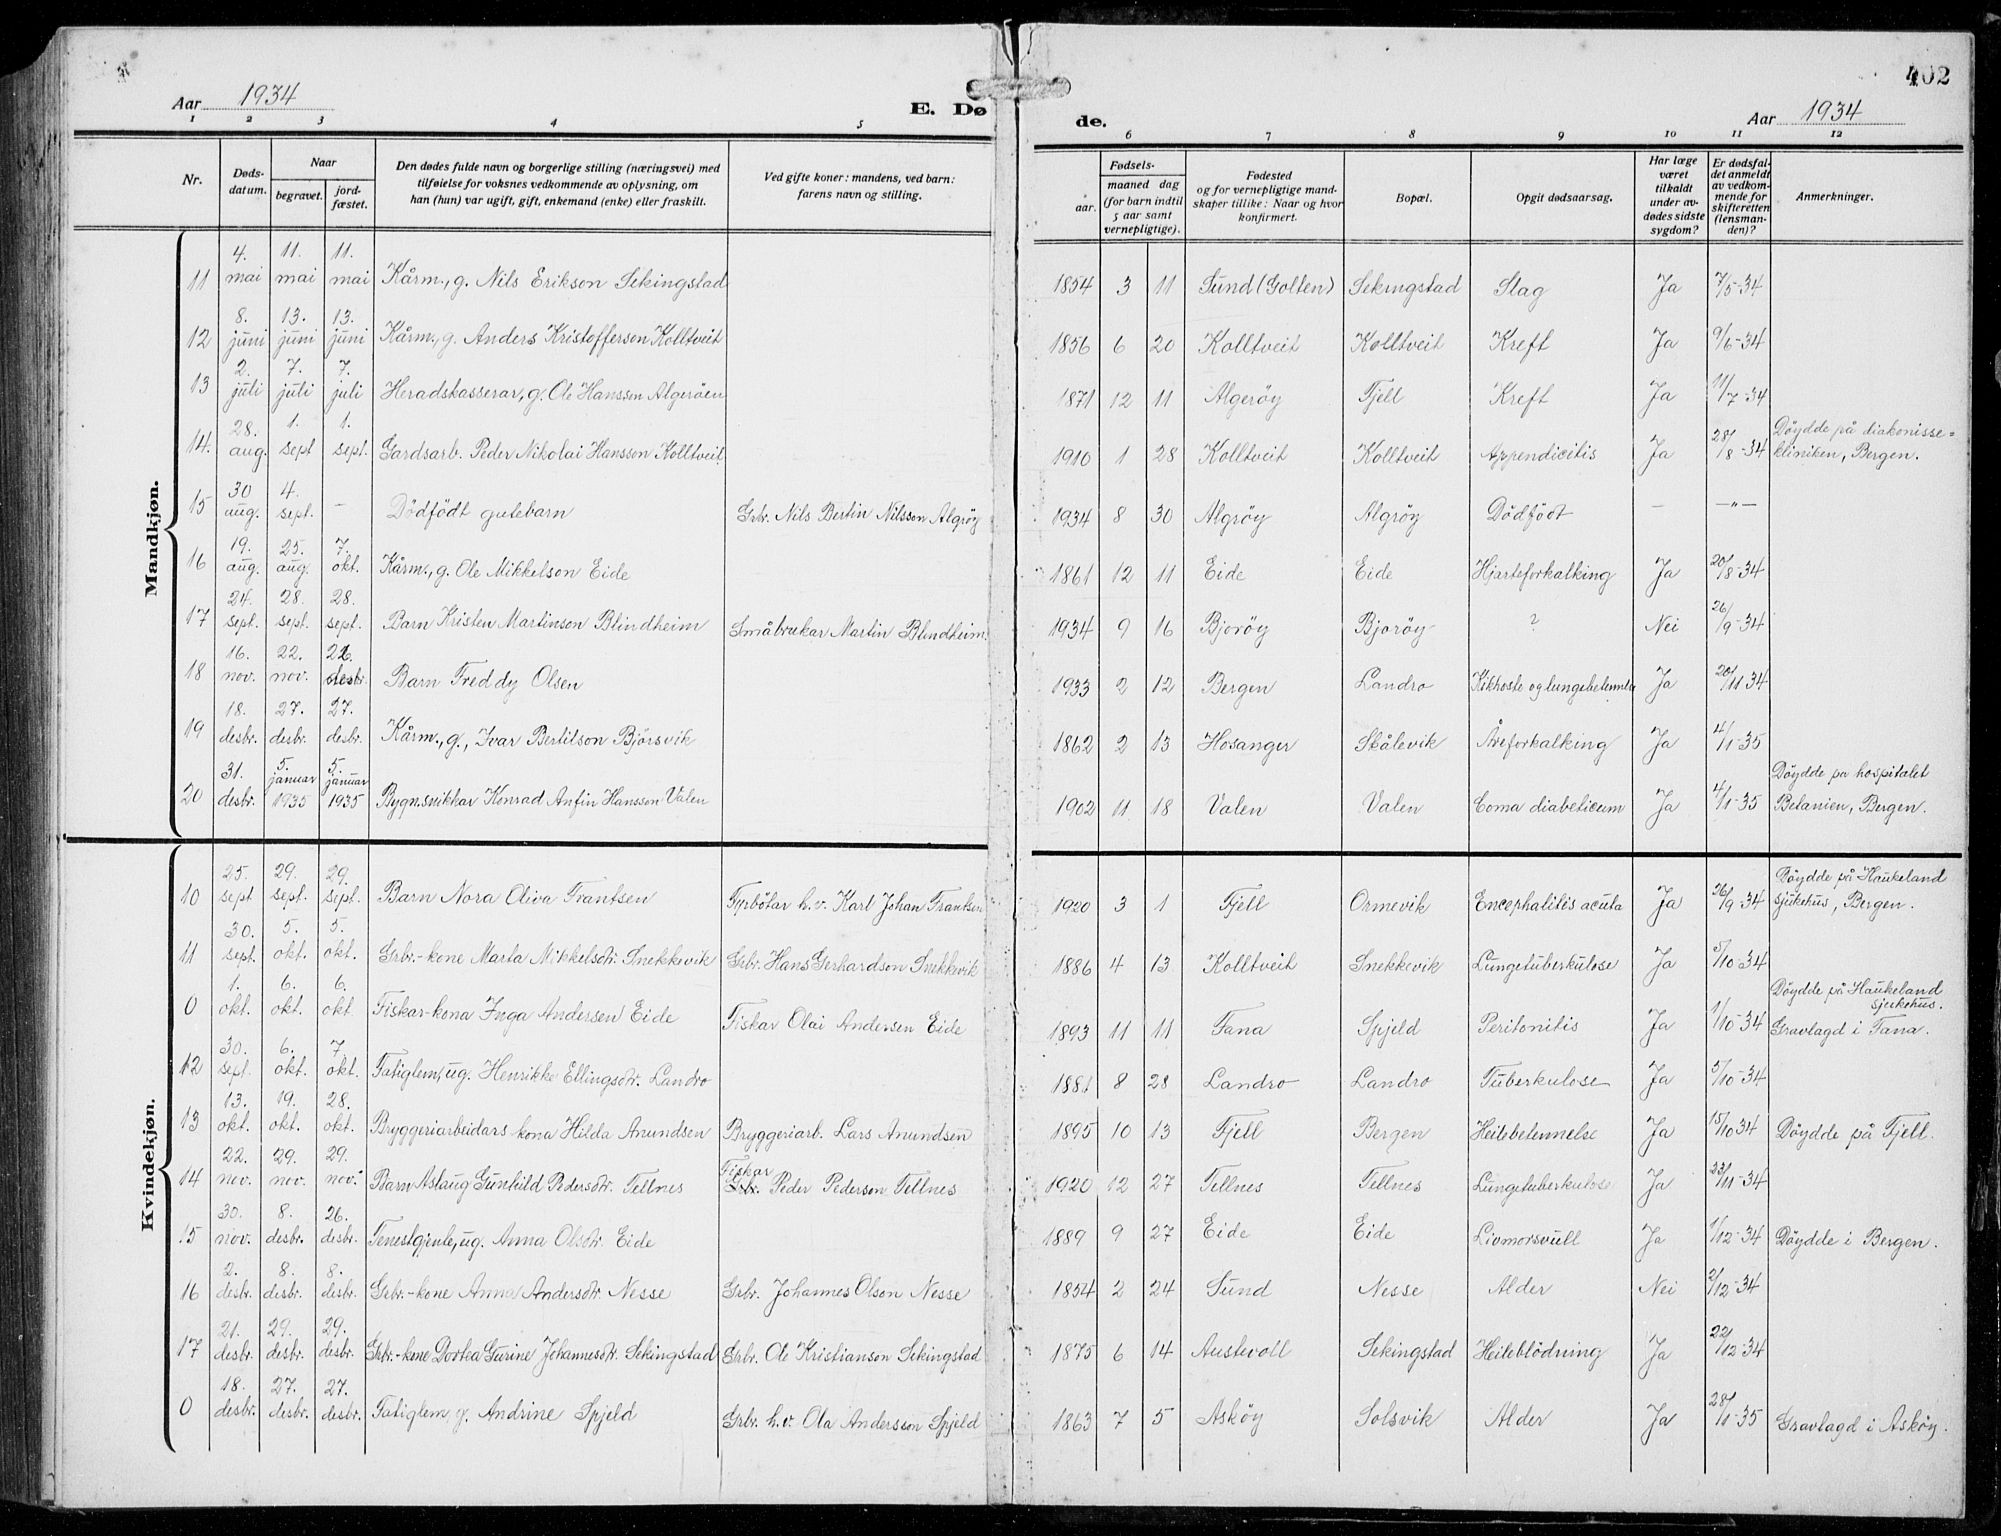 402
Aar 1934
E. Døde.
Aar 1934
1 2 3 4 5 6 7 8 9 10 11 12
Nr.
Døds-datum.
Naar
begravet.
jord-fæstet.
Den dødes fulde navn og borgerlige stilling (næringsvei) med
tilføielse for voksnes vedkommende av oplysning, om
han (hun) var ugift, gift, enkemand (enke) eller fraskilt.
Ved gifte koner: mandens, ved barn:
farens navn og stilling.
Fødsels-
aar.
maaned dag
(for barn indtil
5 aar samt
vernepligtige).
Fødested
og for vernepligtige mand-
skaper tillike: Naar og hvor
konfirmert.
Bopæl.
Opgit dødsaarsag.
Har læge
været
tilkaldt
under av-
dødes sidste
sygdom?
Er dødsfal-
det anmeldt
av vedkom-
mende for
skifteretten
(lensman-
den)?
Anmerkninger.
Mandkjøn.
11 4. mai 11. mai 11. mai Kårm., g. Nils Erikson Sekingstad 1854 3 11 Sund (Golten) Sekingstad Slag Ja 7/5-34
12 8. juni 13. juni 13. juni Kårm., g. Anders Kristofferson Kolltveit 1856 6 20 Kolltveit Kolltveit Kreft Ja 9/6-34
13 2. juli 7. juli 7. juli Heradskasserar, g. Ole Hansson Algeröen 1871 12 11 Algeröy Fjell Kreft Ja 11/7-34
14. 28. aug. 1. sept 1. sept. Gardsarb. Peder Nikolai Hansson Kolltveit 1910 1 28 Kolltveit Kolltveit Appendicitis Ja 28/8-34 Döydde på diakonisse=kliniken, Bergen.
15 30 aug. 4. sept. — Dödfödt gutebarn Grbr. Nils Bertin Nilsson Algröy 1934 8 30 Algröy Algröy Dödfödt — —"—
16 19. aug. 25. aug. 7. okt. Kårm., g. Ole Mikkelson Eide 1861 12 11 Eide Eide Hjarteforkalking Ja 20/8-34
17 24. sept. 28. sept. 28. sept. Barn Kristen Martinson Blindheim Småbrukar Martin Blindheim. 1934 9 16 Bjoröy Bjoröy ? Nei 26/9-34
18 16. nov. 22. nov. 22. desbr. Barn Freddy Olsen 1933 2 12 Bergen Landro Kikhoste og lungebetennelse Ja 20/11 34
19 18. desbr. 27. desbr. 27. desbr. Kårm., g., Ivar Bertilson Björsvik 1862 2 13 Hosanger Skålevik Åreforkalking Ja 4/1-35
20 31. desbr. 5. januar 1935 5. januar 1935 Bygn.snikkar Konrad Anfin Hansson Valen 1902 11 18 Valen Valen Coma diabeticum Ja 4/1-35 Döydde pa hospitalet Betanien, Bergen.
Kvindekjøn.
10 25. sept 29. sept. 29. sept. Barn Nora Oliva Frantsen Fyrbötar h.v. Karl Johan Frantsen 1920 3 1 Fjell Ormevik Encephalitis acuta Ja 26/9-34 Döydde på Haukeland sjukehus, Bergen.
11 30. sept. 5. okt. 5. okt. Grbr.-kone Marta Mikkelsdtr. Snekkevik Grbr. Hans Gerhardson Snekkevik 1886 4 13 Kolltveit Snekkevik Lungetuberkulose Ja 5/10-34
0 1. okt. 6. okt. 6. okt. Fiskar-kona Inga Andersen Eide Fiskar Olai Andersen Eide 1893 11 11 Fana Spjeld Peritonitis Ja 1/10-34 Döydde på Haukeland sjukehus. Gravlagd i Fana.
12 30. sept. 6. okt. 7. okt. Fatiglem, ug. Henrikke Ellingsdtr. Landro 1881 8 28 Landro Landro Tuberkulose Ja 5/10-34
13 13. okt. 19. okt. 28. okt. Bryggeriarbeidars kona Hilda Anundsen Bryggeriarb. Lars Anundsen 1895 10 13 Fjell Bergen Heilebetennelse Ja 15/10 34 Döydde på Fjell.
14 22. nov. 29. nov. 29. nov. Barn Aslaug Gunhild Pedersdtr. Tellnes Fiskar Grbr. Peder Pederson Tellnes 1920 12 27 Tellnes Tellnes Lungetuberkulose Ja 23/11-34
15 30. nov. 8. desbr. 26. desbr. Tenestgjente, ug. Anna Olsdtr. Eide 1889 9 27 Eide Eide Livmorsvull Ja 1/12-34 Döydde i Bergen.
16 2. desbr. 8. desbr. 8. desbr. Grbr.-kone Anna Andersdtr. Nesse Grbr. Johannes Olson Nesse 1854 2 24 Sund Nesse Alder Nei 2/12-34
17 21. desbr. 29. desbr. 29. desbr. Grbr.-kone Dortea Gurine Johannesdtr. Sekingstad Grbr. Ole Kristianson Sekingstad 1875 6 14 Austevoll Sekingstad Heileblödning Ja 22/12-34
0 18. desbr. 27. desbr. 27. desbr. Fatiglem, g. Andrine Spjeld Grbr. h.v. Ola Andersson Spjeld 1863 7 5 Asköy Solsvik Alder Ja 28/1-35 Gravlagd i Asköy.